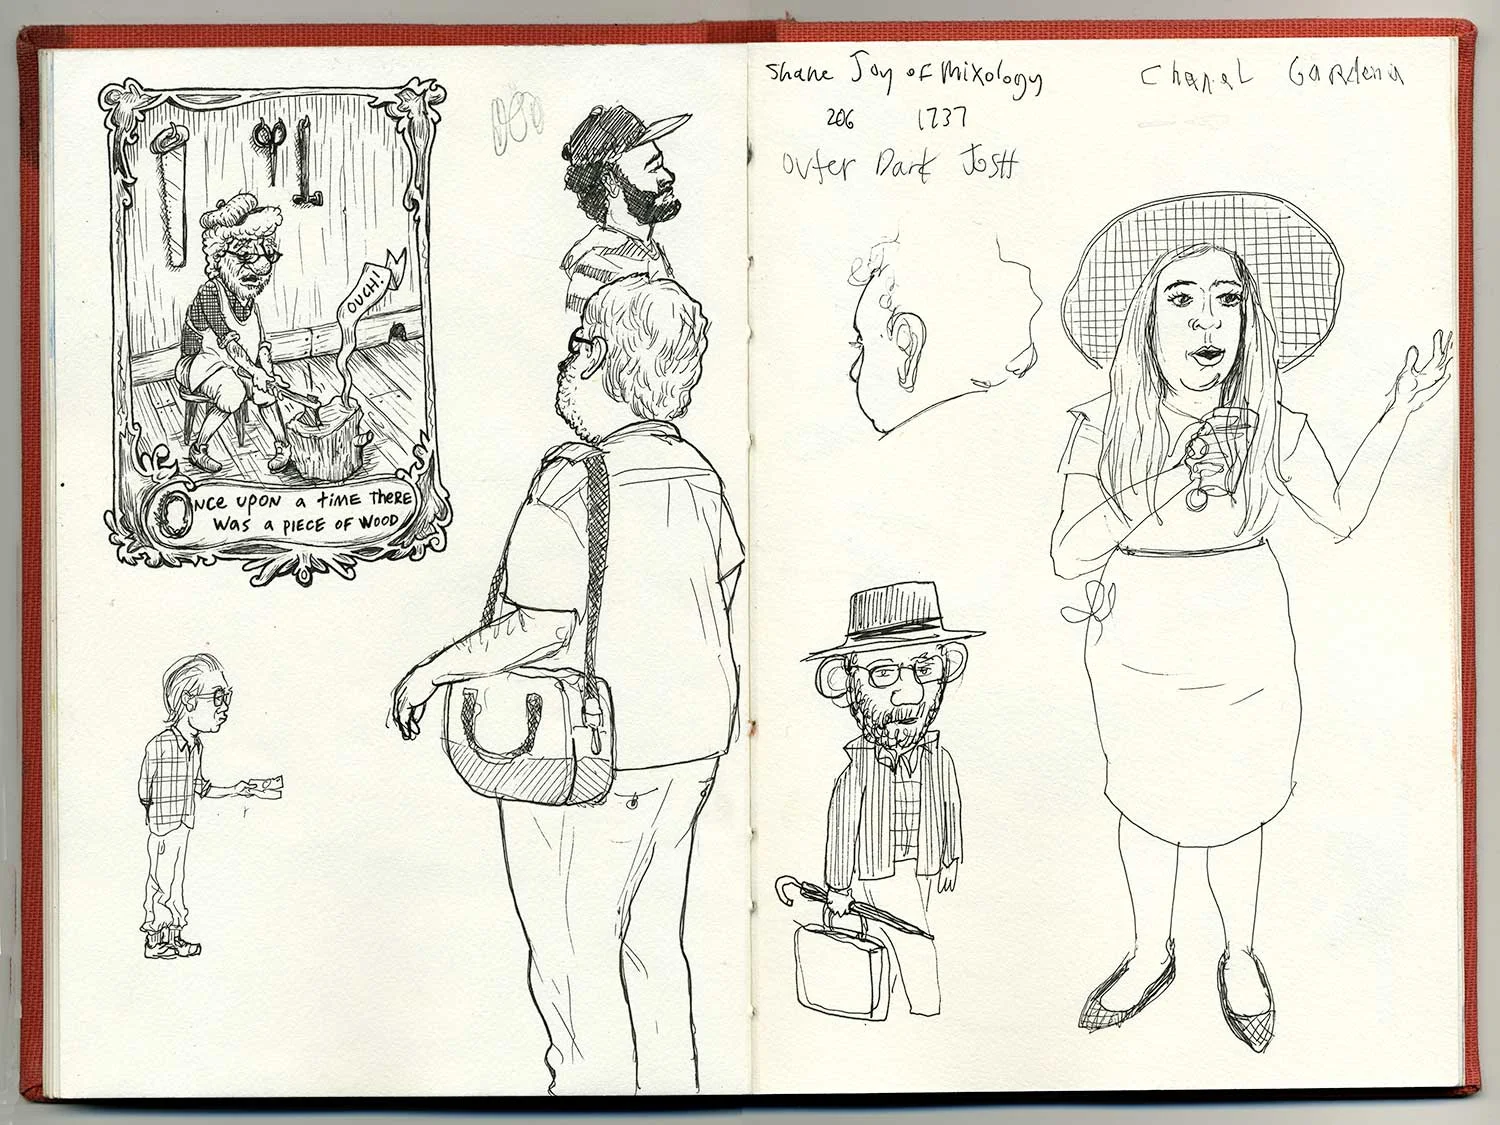 OUCH!
ONCE UPON A TIME THERE
WAS A PIECE OF WOOD
Shane Joy of Mixology
206 1737
Outer Dark Josh
Chanel Gardenia